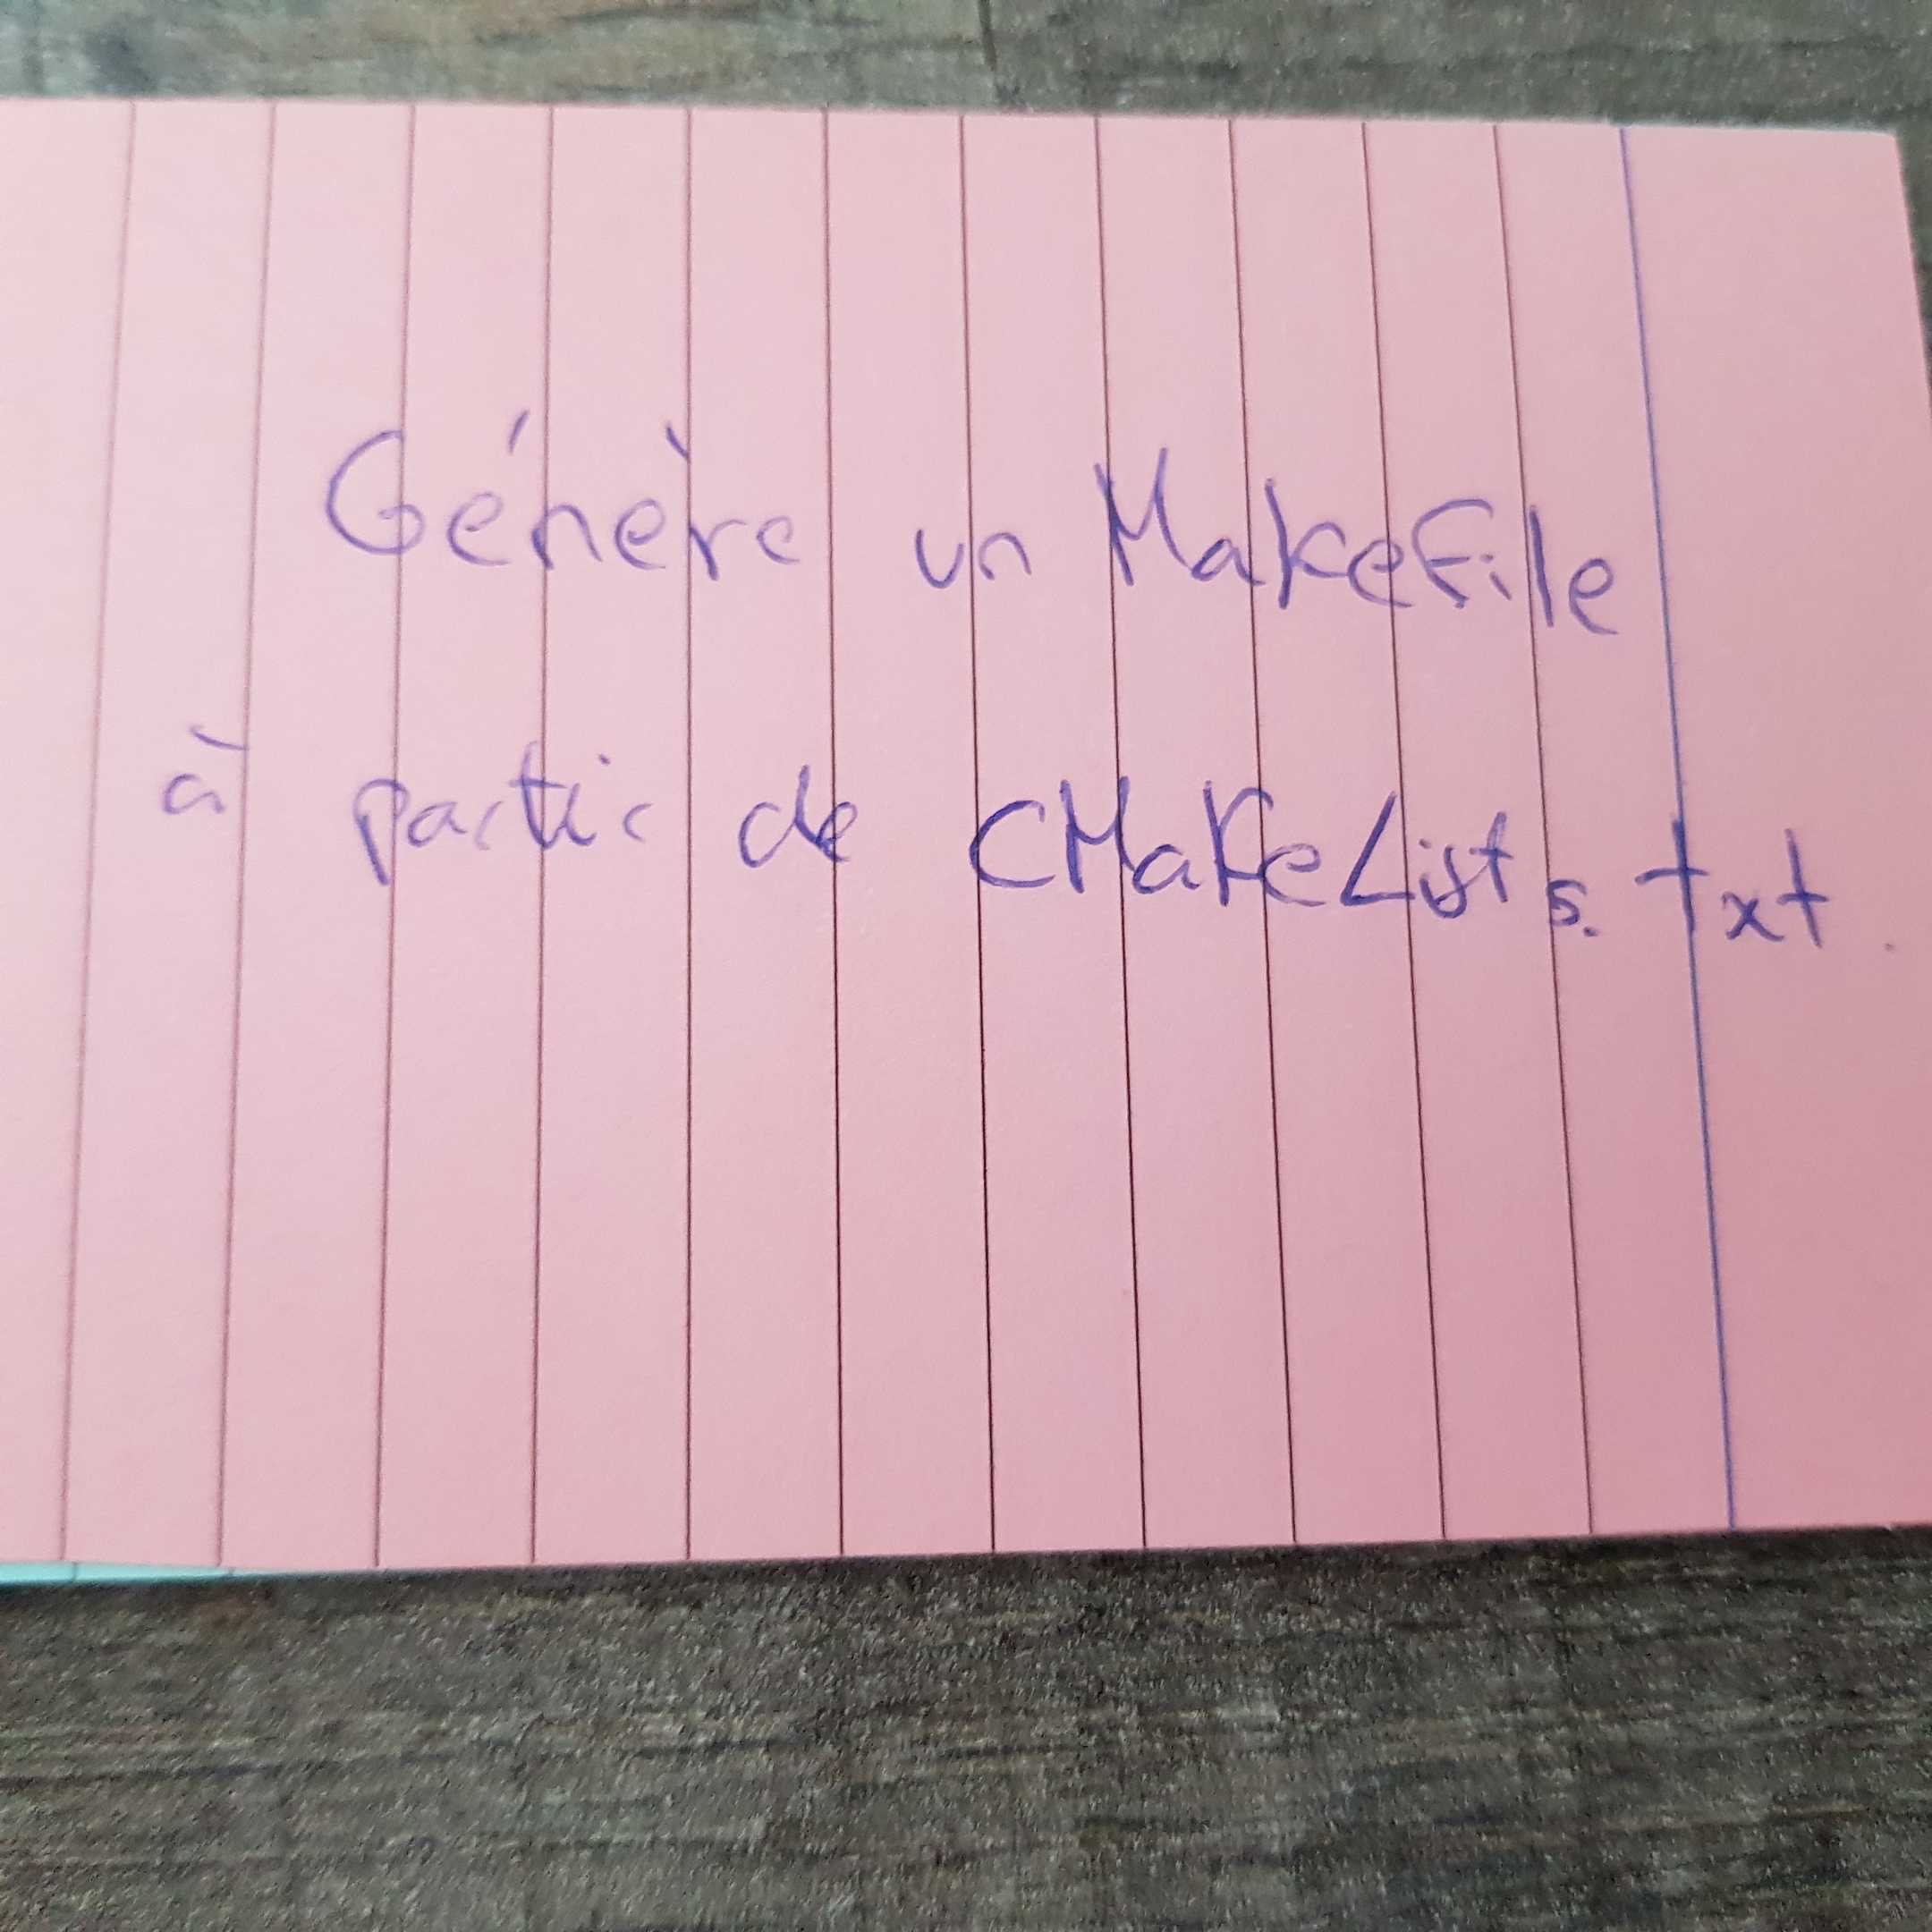 Génère un Makefile
à partir de CMakeLists.txt.